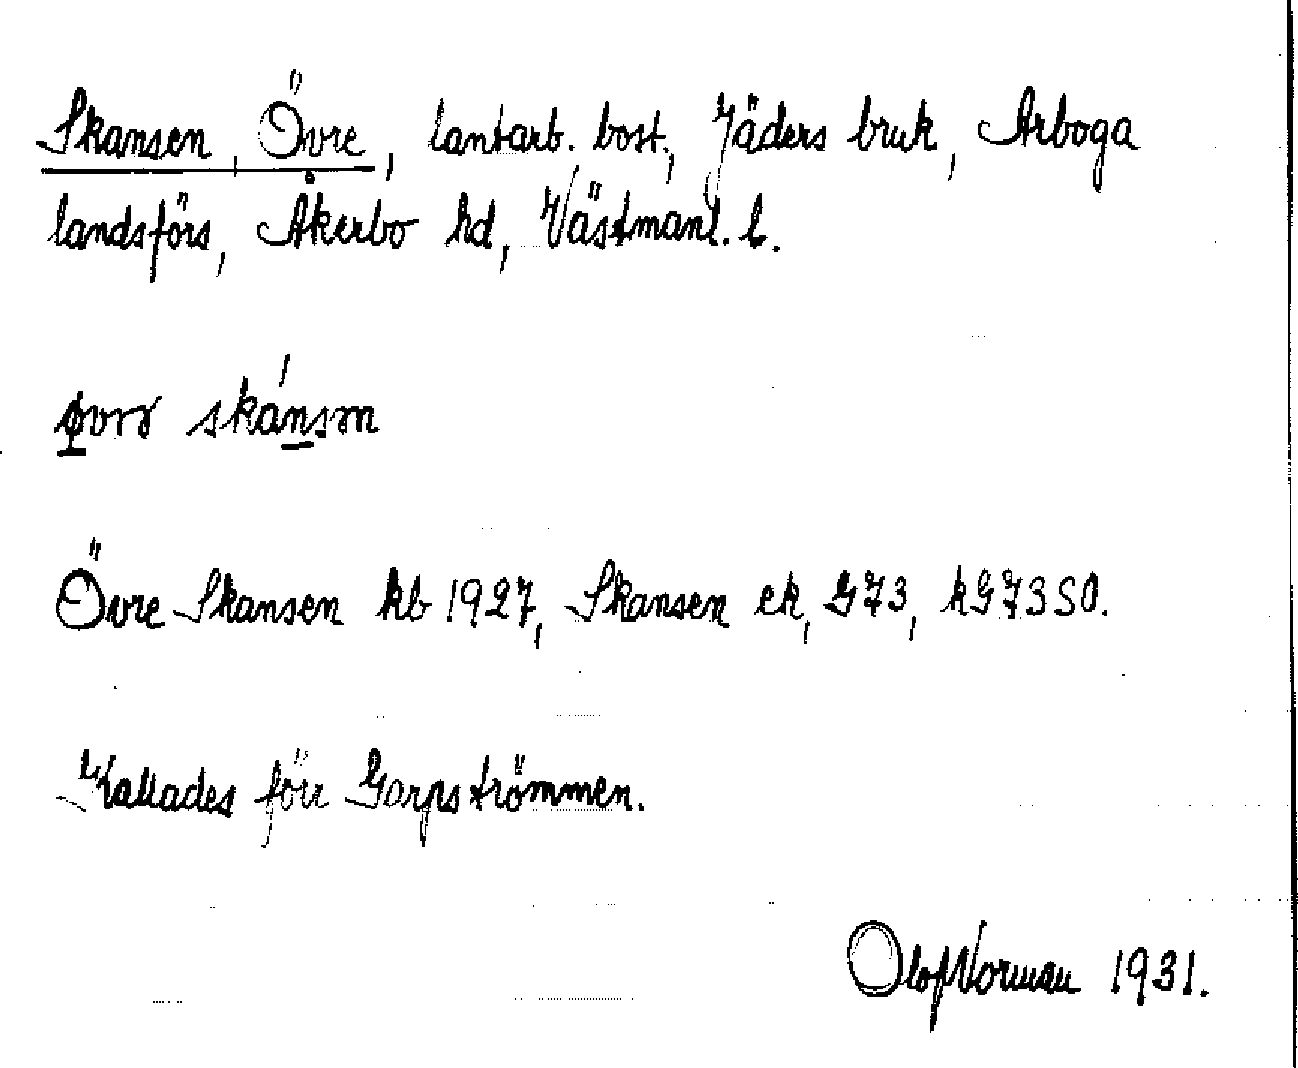 Skansen, Övre, lantarb. bost., Jäders bruk, Arboga
landsförs, Åkerbo hd, Västmanl. l.
Övre Skansen kb 1927, Skansen ek, G73, kG73SO.
Kallades förr Garpströmmen.
Olof Norman 1931.